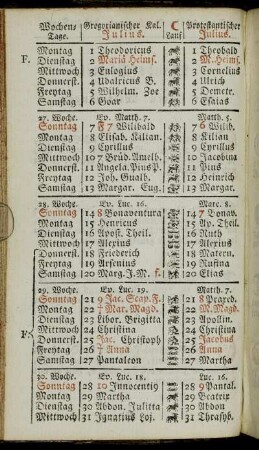 Wochen- Gregorianischer Kal. ☾ Protestantischer
Tage. Julius. Lauf Julius.
Montag 1 Theodoricus 1 Theobald
F. Dienstag 2 Mariä Heimſ. 2 M. Heimſ.
Mittwoch 3 Eulogius 3 Cornelius
Donnerſt. 4 Udalricus B. 4 Ulrich
Freytag 5 Wilhelm. Zoe 5 Demet.
Samſtag 6 Goar 6 Eſaias
27. Woche. Ev. Matth. 7. Matth. 5.
Sonntag 7 F 7 Wilibald 7 6 Wilib.
Montag 8 Eliſab. Kilian. 8 Kilian
Dienſtag 9 Cyrillus 9 Cyrillus
Mittwoch 10 7 Brüd. Amelb. 10 Jacobina
Donnerſt. 11 Angela. Pius P. 11 Pius
Freytag 12 Joh. Gualb. 12 Heinrich
Samſtag 13 Margar. Eug. 13 Margar.
28. Woche. Ev. Luc. 16. Marc. 8.
Sonntag 14 8 Bonaventura 14 7 Bonav.
Montag 15 Henricus 15 Ap. Theil.
Dienſtag 16 Apoſt. Theil. 16 Ruth
Mittwoch 17 Alexius 17 Alexius
Donnerſt. 18 Friederich 18 Matern.
Freytag 19 Arſenius 19 Rufina
Samſtag 20 Marg. J. M. f. 20 Elias
29. Woche. Ev. Luc. 19. Matth. 7.
Sonntag 21 9 Jac. Scap. F. 21 8 Praxed.
Montag 22 † Mar. Magd. 22 M. Magd.
Dienſtag 23 Libor. Brigitta 23 Apollin.
F. Mittwoch 24 Chriſtina 24 Chriſtina
Donnerſt. 25 Jac. Chriſtoph 25 Jacobus
Freytag 26 † Anna 26 Anna
Samſtag 27 Pantaleon 27 Martha
30. Woche. Ev. Luc. 18. Luc. 16.
Sonntag 28 10 Innocentis 28 9 Pantal.
Montag 29 Martha 29 Beatrix
Dienſtag 30 Abdon. Julitta 30 Abdon
Mittwoch 31 Ignatius Loj. 31 Thraſyb.